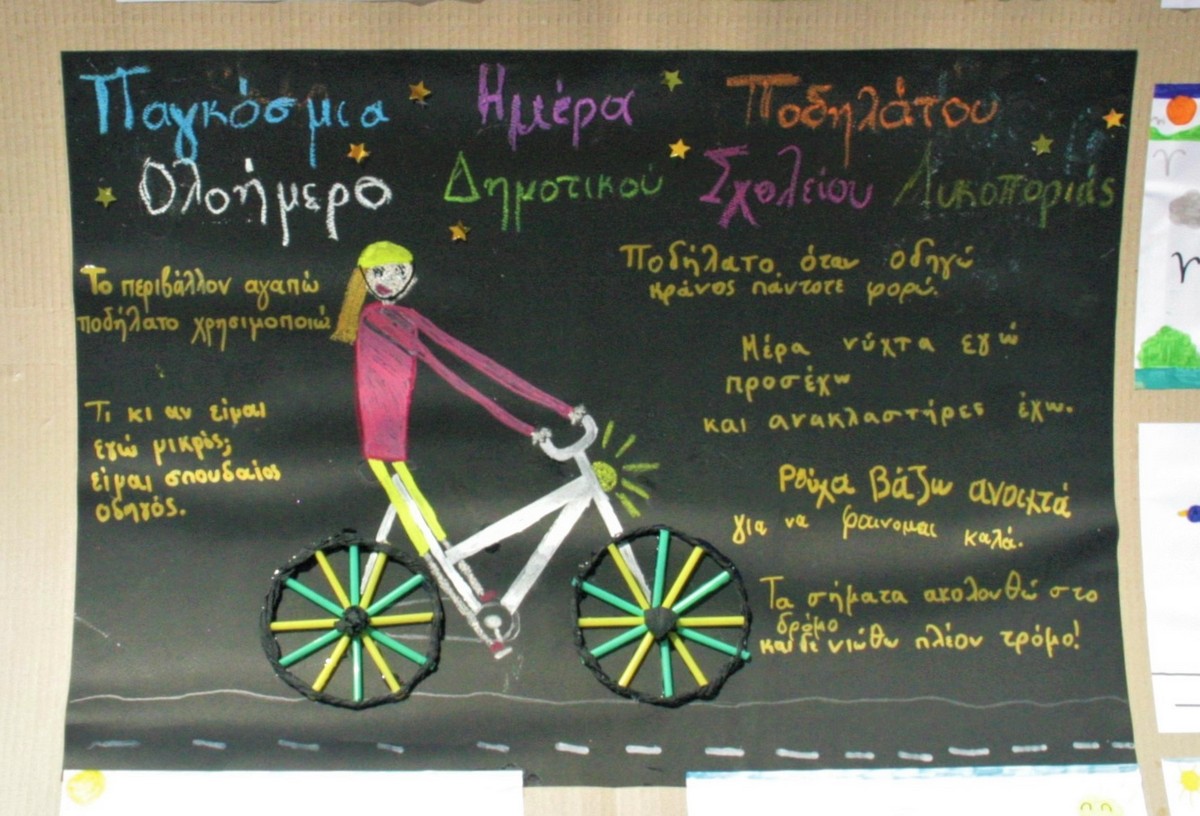 Παγκόσμια Ημέρα Ποδηλάτου
Ολοήμερο Δημοτικού Σχολείου Λυκοποριάς
Το περιβάλλον αγαπώ
ποδήλατο χρησιμοποιώ
Τι κι αν είμαι
εγώ μικρός;
είμαι σπουδαίος
οδηγός.
Ποδήλατο, όταν οδηγώ
κράνος πάντοτε φορώ.
Μέρα νύχτα εγώ
προσέχω
και ανακλαστήρες έχω.
Ρούχα βάζω ανοιχτά
για να φαινομαι καλά.
Τα σήματα ακολουθώ στο
δρόμο
και δε νιώθω πλέον τρόμο!